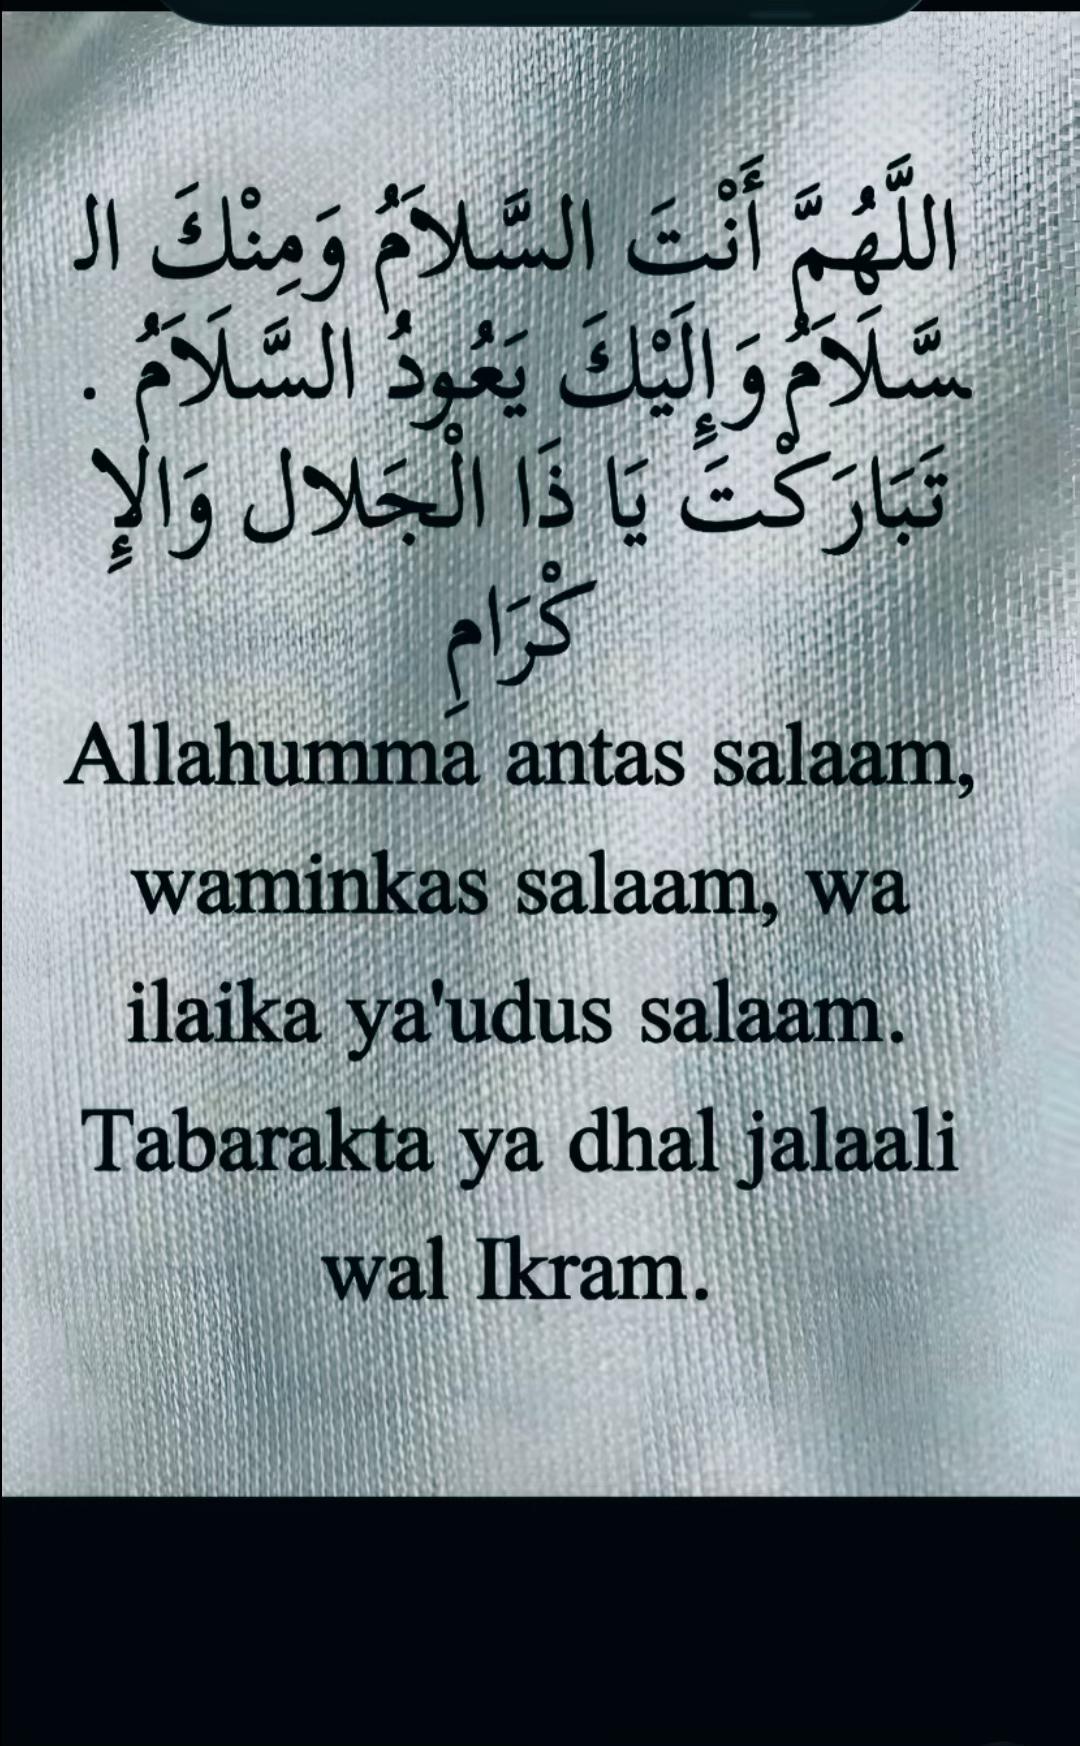 اللَّهُمَّ أَنْتَ السَّلاَمُ وَمِنْكَ الـ
ـسَّلَامُ وَإِلَيْكَ يَعُودُ السَّلَامُ .
تَبَارَكْتَ يَا ذَا الْجَلال وَالإِ
كْرَامِ
Allahumma antas salaam,
waminkas salaam, wa
ilaika ya'udus salaam.
Tabarakta ya dhal jalaali
wal Ikram.